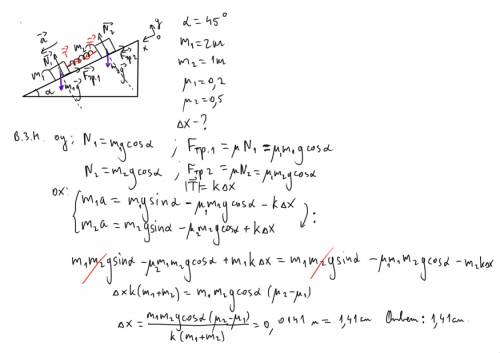 α = 45°
m₁ = 2m
m₂ = 1m
μ₁ = 0,2
μ₂ = 0,5
Δx - ?
a⃗ N⃗₁ T⃗ T⃗ N⃗₂ y
m₁ m₂ x 0
F⃗тр.1 F⃗тр2
m₁g⃗ m₂g⃗
α
В.З.Н. оу: N₁ = m₁gcosα ; Fтр.1 = μN₁ = μ₁m₁gcosα
N₂ = m₂gcosα ; Fтр2 = μN₂ = μ₂m₂gcosα
|T⃗| = kΔx
ох: { m₁a = m₁gsinα - μ₁m₁gcosα - kΔx
m₂a = m₂gsinα - μ₂m₂gcosα + kΔx ) :
m₁m₂gsinα - μ₂m₁m₂gcosα + m₁kΔx = m₁m₂gsinα - μ₁m₁m₂gcosα - m₂kΔx
Δxk(m₁+m₂) = m₁m₂gcosα (μ₂-μ₁)
Δx = m₁m₂gcosα(μ₂-μ₁) / k(m₁+m₂) = 0,0141 м = 1,41 см Ответ: 1,41 см.